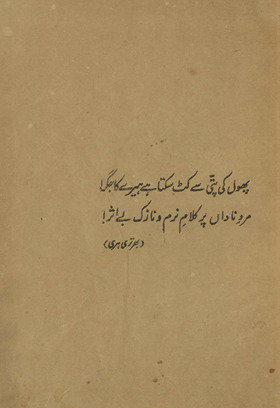 پھول کی پتّی سے کٹ سکتا ہے ہیرے کا جگر!
مردِ ناداں پر کلامِ نرم و نازک بے اثر!
(بھرتری ہری)